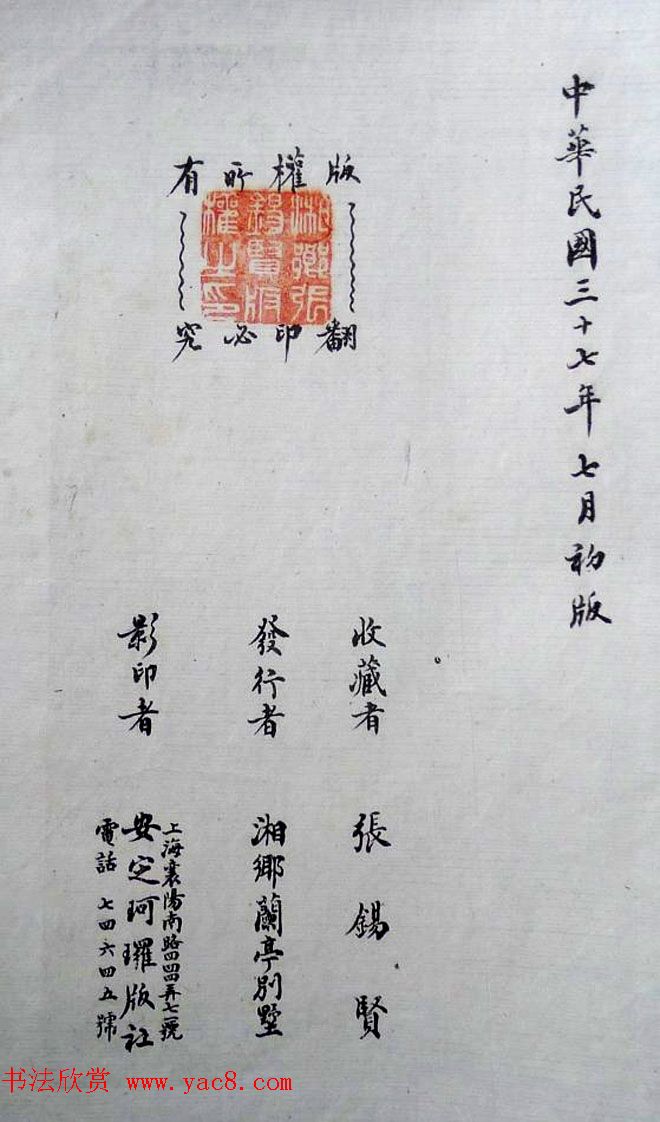 中華民國三十七年七月初版
版權所有
湘鄉張
錫賢版
權之印
翻印必究
收藏者 張錫賢
發行者 湘鄉蘭亭別墅
影印者 安定珂瓓版社
上海襄陽南路四四弄七號
電話 七四六四五號
书法欣赏 www.yac8.com